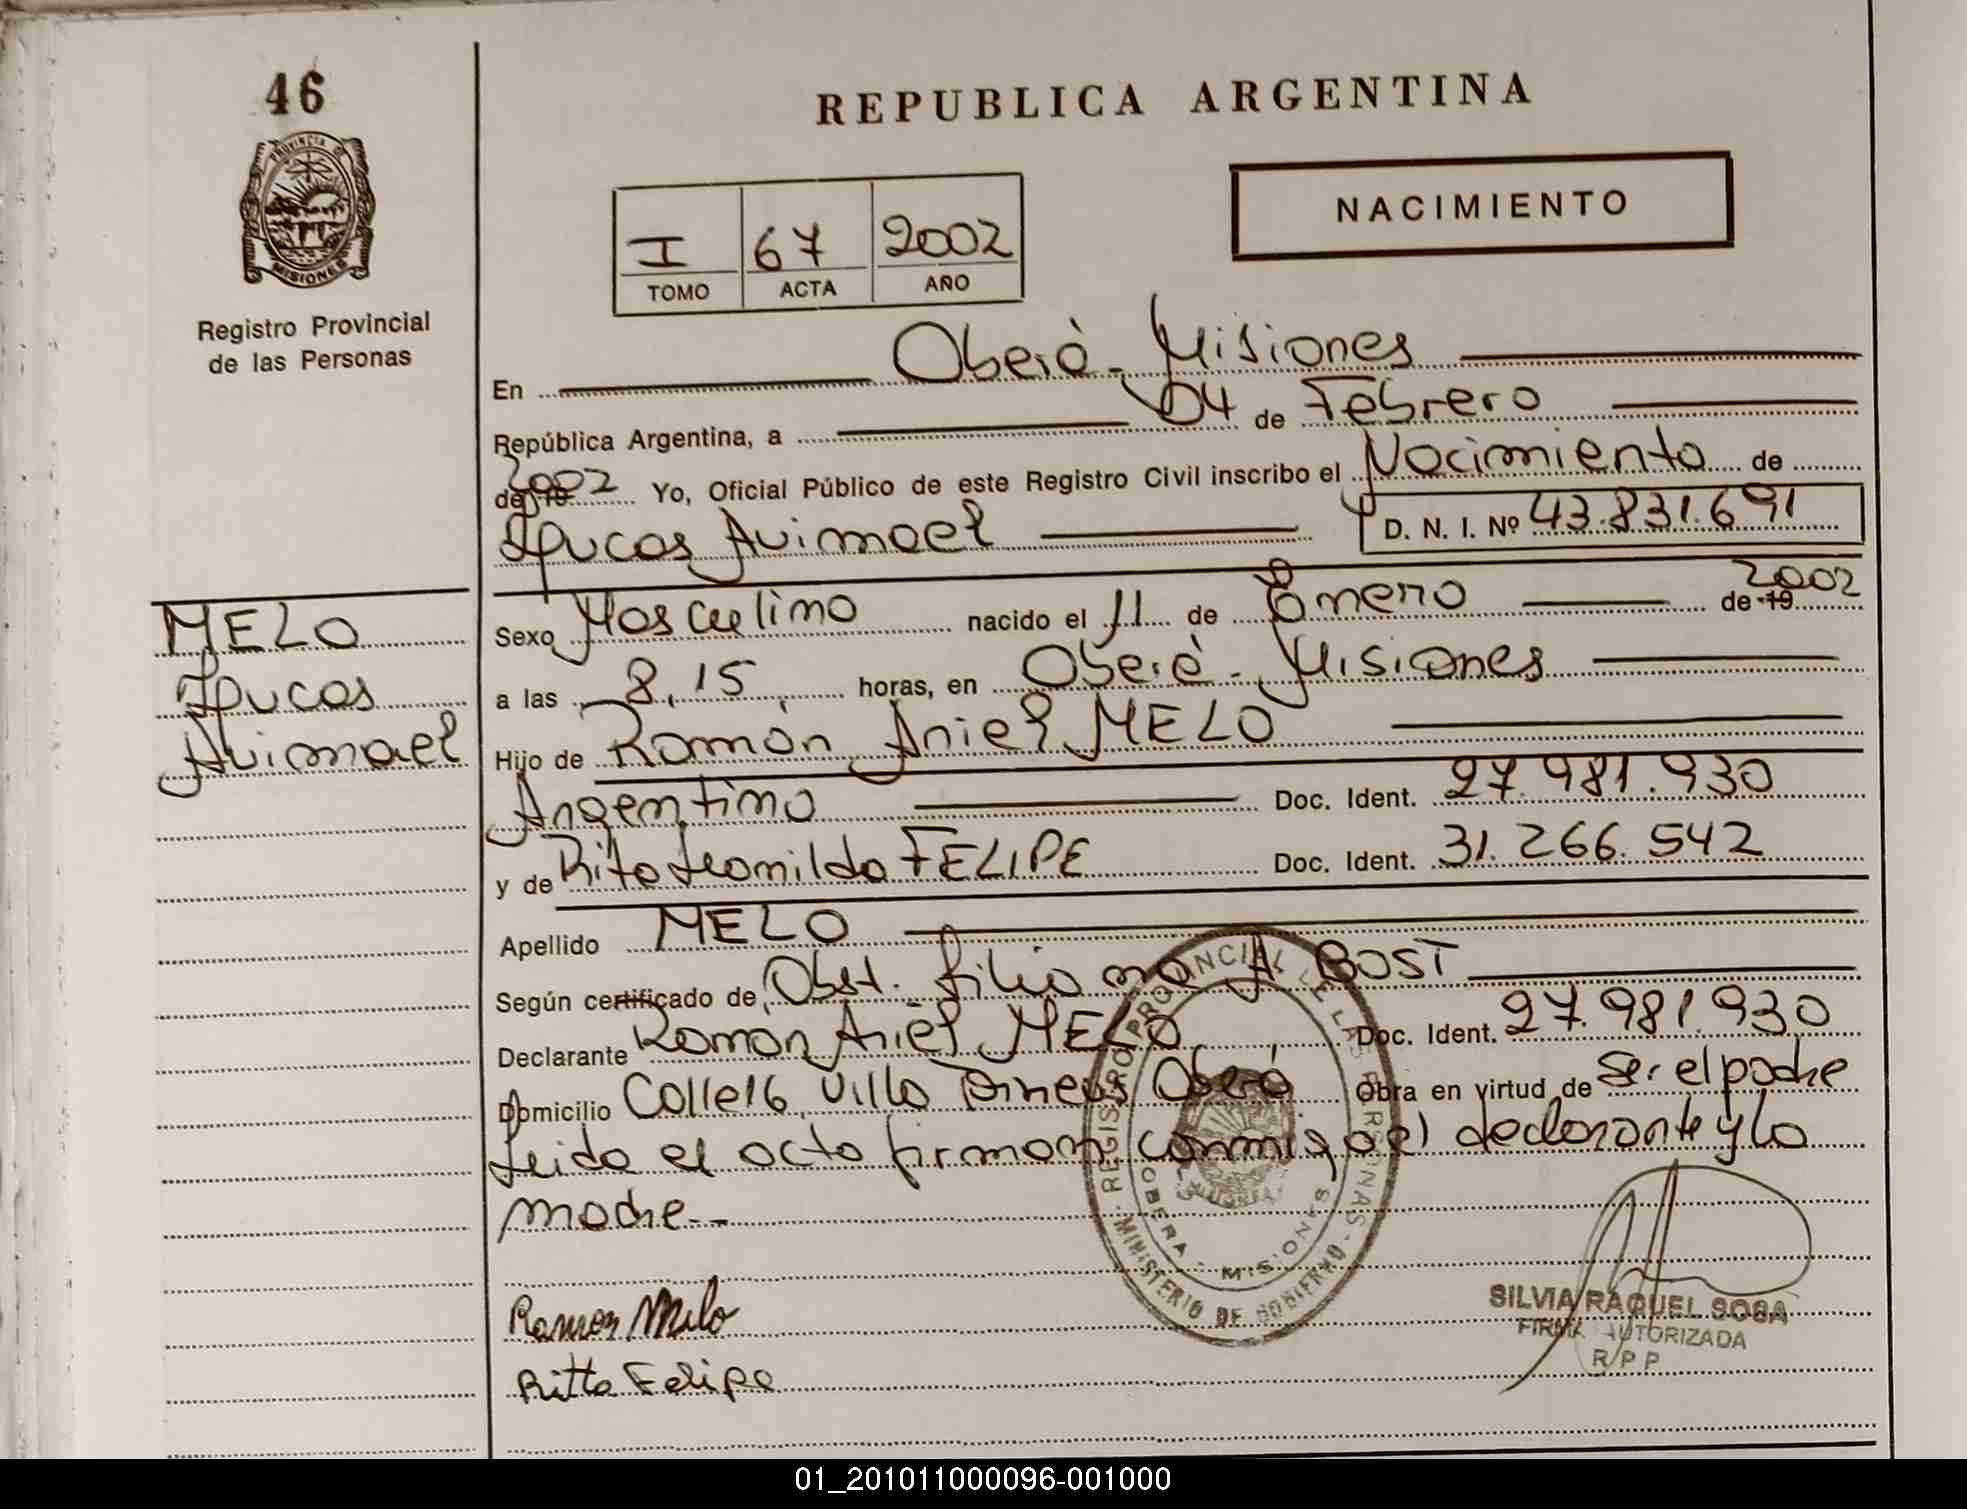 46
REPUBLICA ARGENTINA
PROVINCIA D
MISIONES
NACIMIENTO
I 67 2002
TOMO ACTA AÑO
Registro Provincial
de las Personas
En Oberá - Misiones
República Argentina, a 04 de Febrero
de 19 2002 Yo, Oficial Público de este Registro Civil inscribo el Nacimiento de
Lucas Avimael D. N. I. Nº 43.831.691
MELO
Lucas
Avimael
Sexo Masculino nacido el 11 de Enero de 19 2002
a las 8,15 horas, en Oberá - Misiones
Hijo de Ramón Ariel MELO
Argentino Doc. Ident. 27.981.930
y de Rita Leonilda FELIPE Doc. Ident. 31.266.542
Apellido MELO
Según certificado de Obst. Liliana A. BOST
Declarante Ramon Ariel MELO Doc. Ident. 27.981.930
Domicilio Calle 16 Villa Oberá Obra en virtud de Ser el padre
Leida el acta firman conmigo el declarante y la
madre.-
REGISTRO PROVINCIAL DE LAS PERSONAS
MINISTERIO DE GOBIERNO
OBERA - MISIONES
Ramon Melo
Ritta Felipe
SILVIA RAQUEL SOSA
FIRMA AUTORIZADA
R P P
01_201011000096-001000